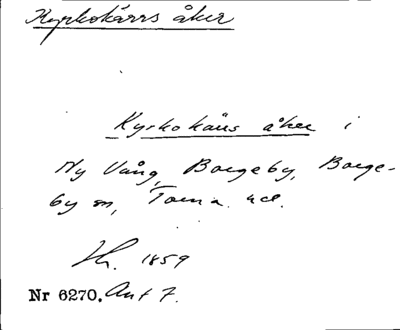 Kyrkokärrs åker
Kyrkokärs åker i
Ny Vång, Borgeby, Borge-
by sn, Torna hd.
Hr. 1859
Nr 6270. Ant 7.